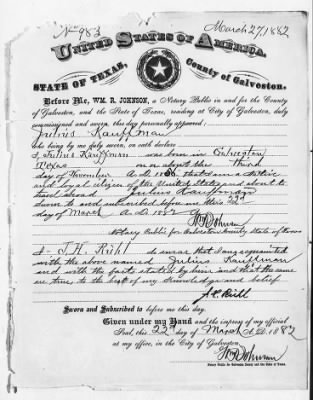 No 983 March 27/1882
UNITED STATES OF AMERICA.
STATE OF TEXAS, County of Galveston.
Before Me, WM. R. JOHNSON, a Notary Public in and for the County
of Galveston, and the State of Texas, residing at City of Galveston, duly
commissioned and sworn, this day personally appeared,
Julius Kauffman
who being by me duly sworn, on oath declares
I, Julius Kauffman was born in Galveston
Texas on or about the third
day of November A.D. that I am a native
and loyal citizen of the United States and about to
travel abroad Julius Kauffman
Sworn to and subscribed before me this 22d
day of March A.D. 1882
W R Johnson
Notary Public for Galveston County State of Texas
I - J. H. Ruhl do swear that I am acquainted
with the above named Julius Kauffman
and with the facts stated by him and that the same
are true to the best of my knowledge and belief
J. H. Ruhl
Sworn and Subscribed to before me this day.
Given under my Hand and the impress of my official
Seal, this 22d day of March A.D. 1882
at my office, in the City of Galveston.
W R Johnson
Notary Public for Galveston County and the State of Texas.